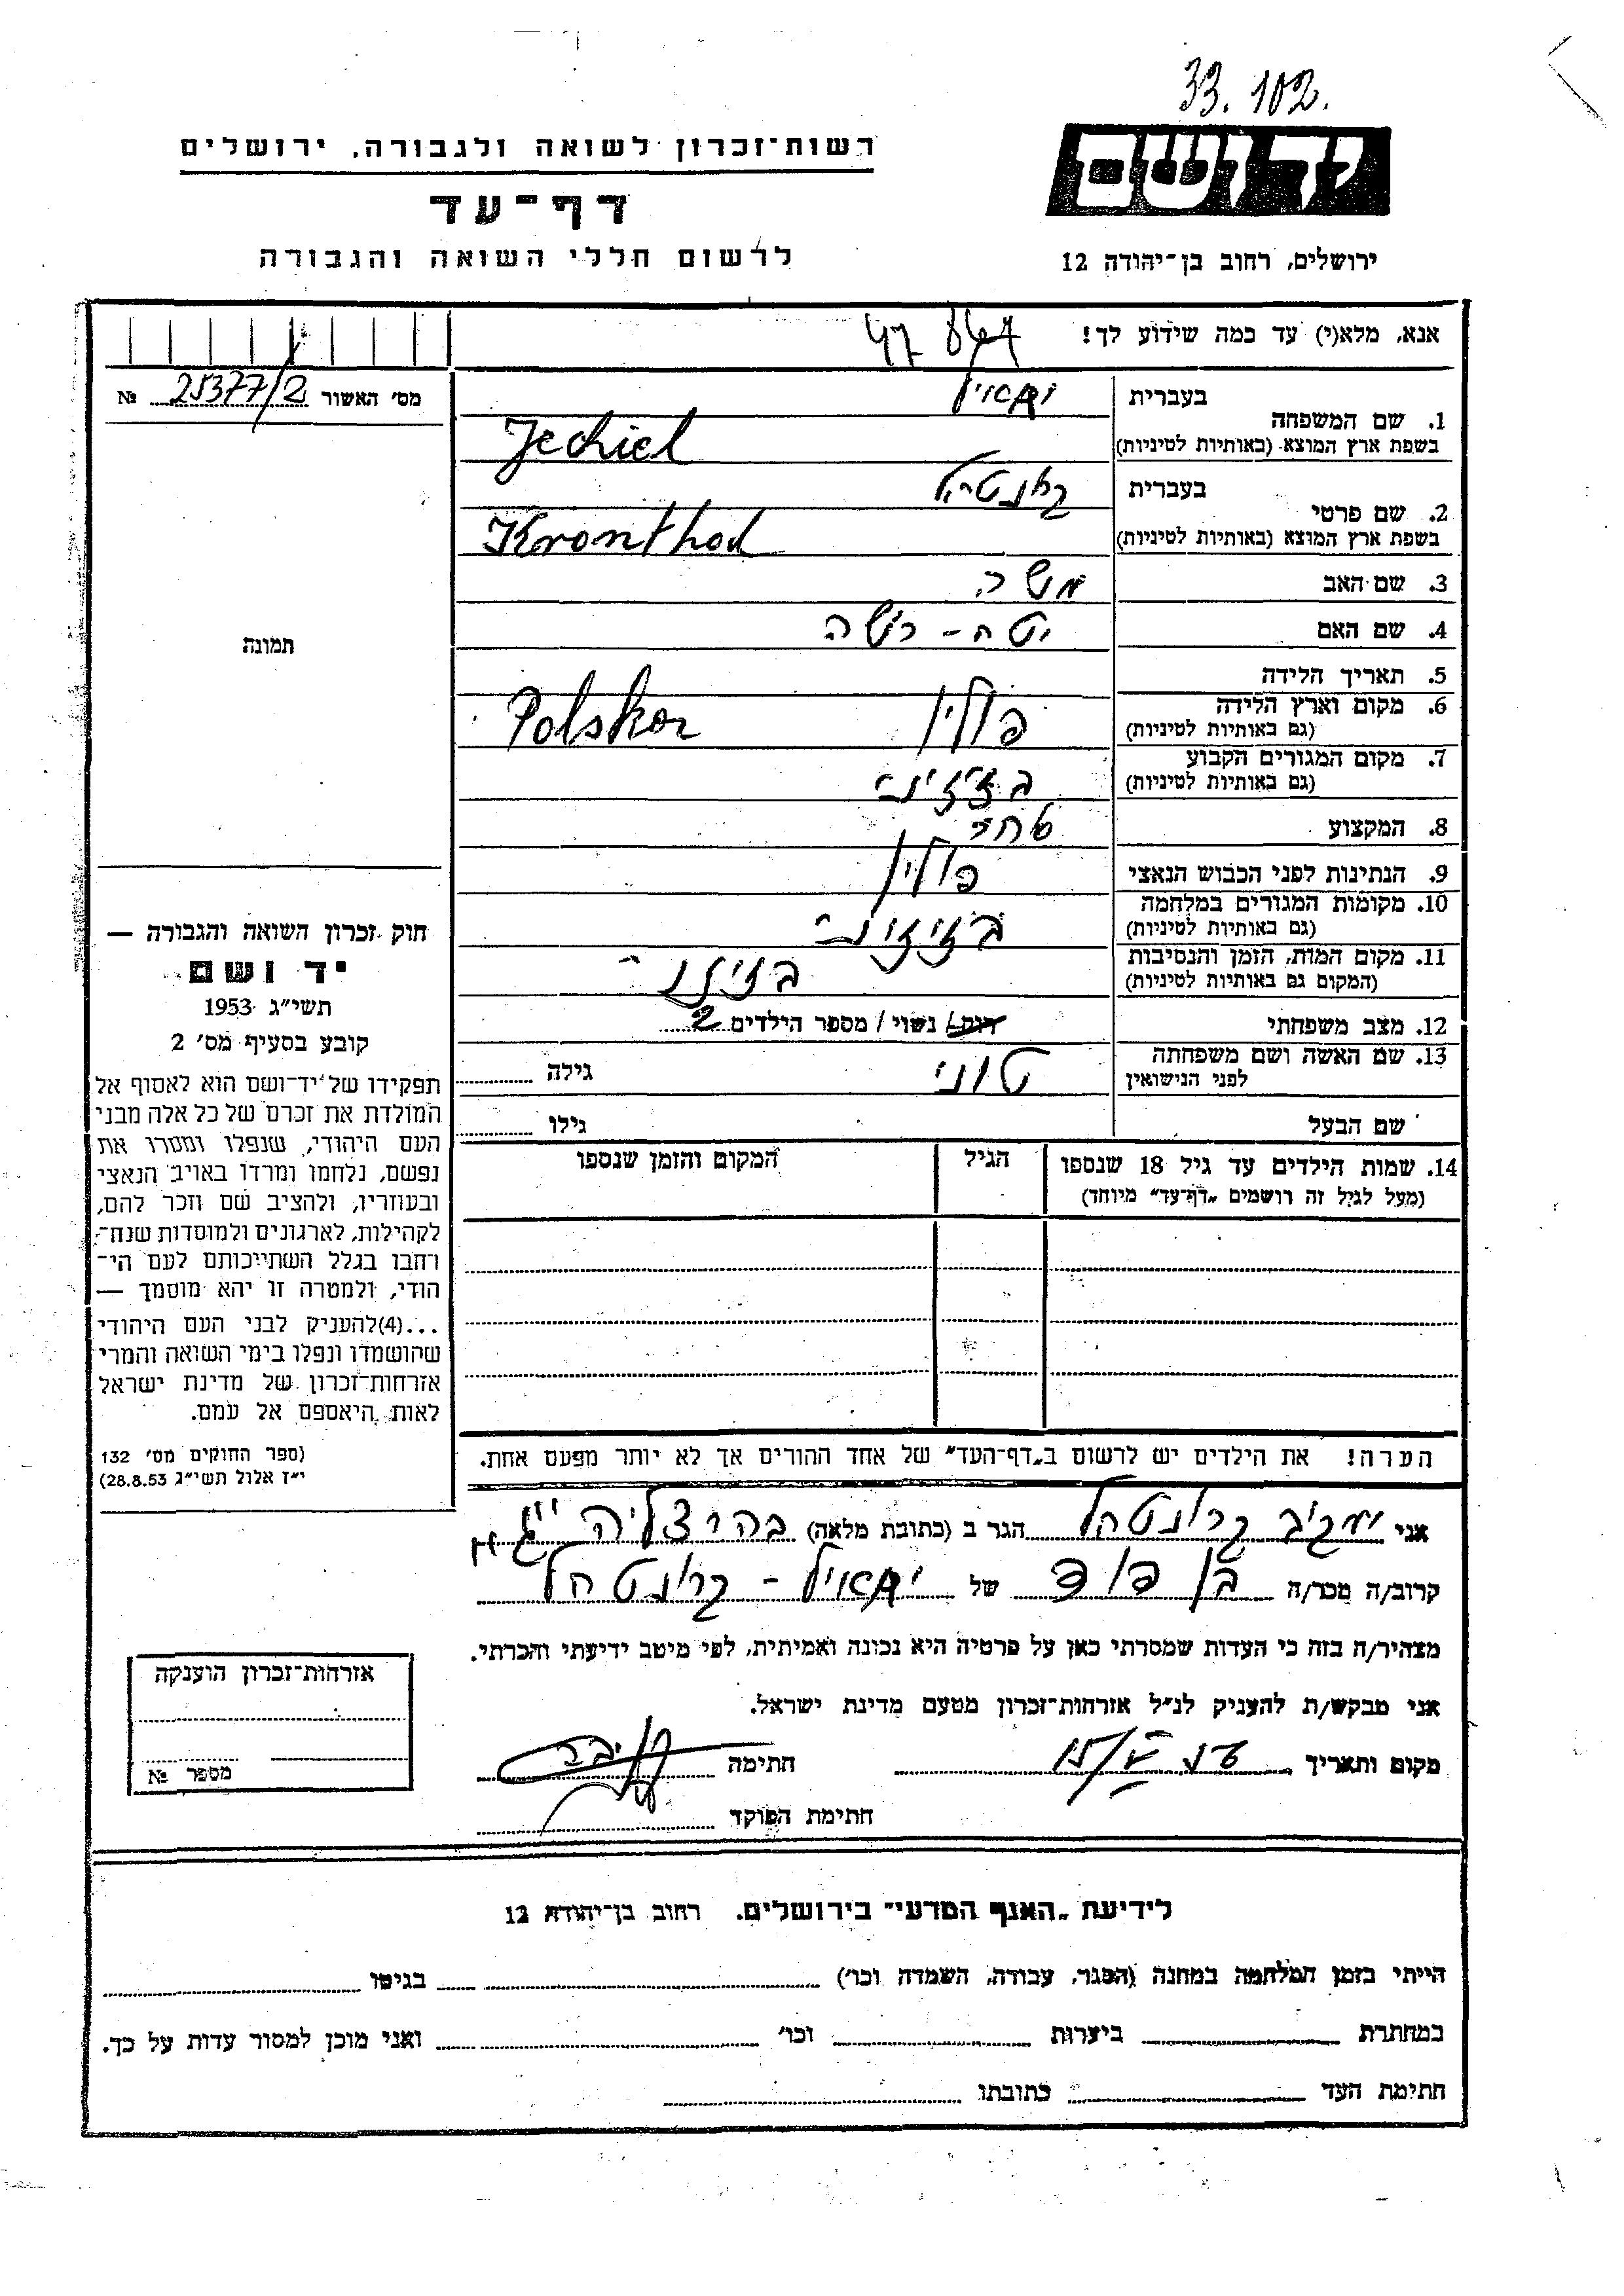 33.102.
יד ושם
רשות־זכרון לשואה ולגבורה, ירושלים
דף־עד
לרשום חללי השואה והגבורה
ירושלים, רחוב בן־יהודה 12
אנא, מלא(י) עד כמה שידוע לך!
מס׳ האשור 25377/2 №
תמונה
בעברית
1. שם המשפחה
בשפת ארץ המוצא (באותיות לטיניות) Jechiel
בעברית
2. שם פרטי
בשפת ארץ המוצא (באותיות לטיניות) Kronthal
3. שם האב משה
4. שם האם יטה - רישה
5. תאריך הלידה
6. מקום וארץ הלידה פולין Polska
(גם באותיות לטיניות)
7. מקום המגורים הקבוע
(גם באותיות לטיניות)
8. המקצוע סוחר
9. הנתינות לפני הכבוש הנאצי פולין
10. מקומות המגורים במלחמה
(גם באותיות לטיניות)
11. מקום המות, הזמן והנסיבות
(המקום גם באותיות לטיניות)
12. מצב משפחתי רווק / נשוי / מספר הילדים 2
13. שם האשה ושם משפחתה טוני גילה
לפני הנישואין
שם הבעל גילו
14. שמות הילדים עד גיל 18 שנספו הגיל המקום והזמן שנספו
(מעל לגיל זה רושמים „דף־עד״ מיוחד)
הערה! את הילדים יש לרשום ב„דף־העד״ של אחד ההורים אך לא יותר מפעם אחת.
חוק זכרון השואה והגבורה —
יד ושם
תשי״ג 1953
קובע בסעיף מס׳ 2
תפקידו של יד־ושם הוא לאסוף אל
המולדת את זכרם של כל אלה מבני
העם היהודי, שנפלו ומסרו את
נפשם, נלחמו ומרדו באויב הנאצי
ובעוזריו, ולהציב שם וזכר להם,
לקהילות, לארגונים ולמוסדות שנח־
רבו בגלל השתייכותם לעם הי־
הודי, ולמטרה זו יהא מוסמך —
...(4) להעניק לבני העם היהודי
שהושמדו ונפלו בימי השואה והמרי
אזרחות־זכרון של מדינת ישראל
לאות היאספם אל עמם.
(ספר החוקים מס׳ 132
י״ז אלול תשי״ג 28.8.53)
אני קרונטהל הגר ב (כתובת מלאה) בהרצליה
קרוב/ה מכר/ה בן דוד של קרונטהל
מצהיר/ה בזה כי העדות שמסרתי כאן על פרטיה היא נכונה ואמיתית, לפי מיטב ידיעתי והכרתי.
אני מבקש/ת להעניק לנ״ל אזרחות־זכרון מטעם מדינת ישראל.
מקום ותאריך חתימה
חתימת הפוקד
אזרחות־זכרון הוענקה
מספר №
לידיעת „האגף המדעי״ בירושלים. רחוב בן־יהודה 12
הייתי בזמן המלחמה במחנה (הסגר, עבודה, השמדה וכו׳) בגיטו
במחתרת ביערות וכו׳ ואני מוכן למסור עדות על כך.
חתימת העד כתובתו